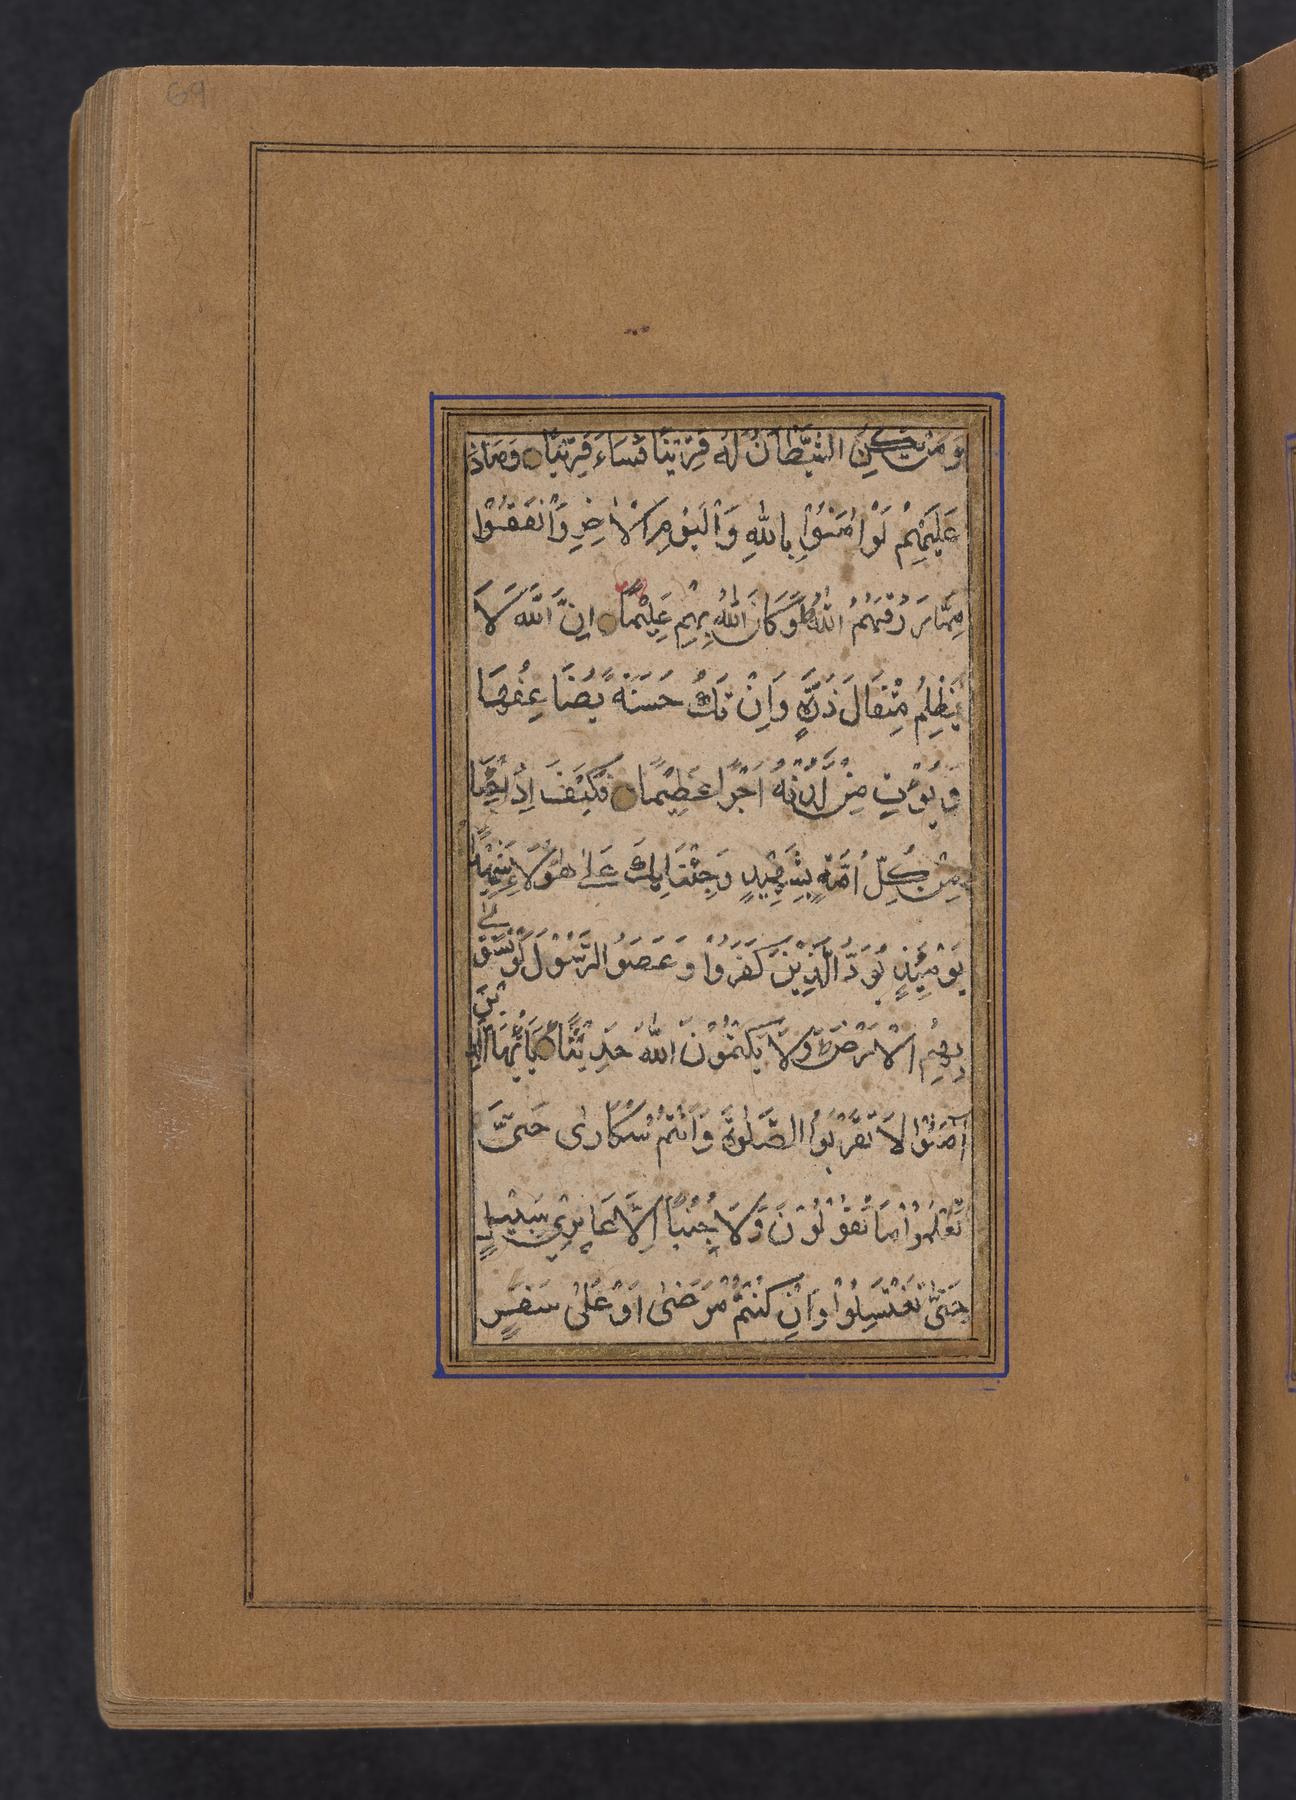 69
وَمَنْ يَكُنِ الشَّيْطَانُ لَهُ قَرِيْنًا فَسَاءَ قَرِيْنًا وَمَاذَا
عَلَيْهِمْ لَوْ اٰمَنُوْا بِاللهِ وَالْيَوْمِ الْاٰخِرِ وَاَنْفَقُوْا
مِمَّا رَزَقَهُمُ اللهُ ط وَكَانَ اللهُ بِهِمْ عَلِيْمًا اِنَّ اللهَ لَا
يَظْلِمُ مِثْقَالَ ذَرَّةٍ وَاِنْ تَكُ حَسَنَةً يُضَاعِفْهَا
وَيُؤْتِ مِنْ لَّدُنْهُ اَجْرًا عَظِيْمًا فَكَيْفَ اِذَا جِئْنَا
مِنْ كُلِّ اُمَّةٍ بِشَهِيْدٍ وَجِئْنَا بِكَ عَلٰى هٰؤُلَاءِ شَهِيْدًا
يَوْمَئِذٍ يَوَدُّ الَّذِيْنَ كَفَرُوْا وَعَصَوُا الرَّسُوْلَ لَوْ تُسَوّٰى
بِهِمُ الْاَرْضُ ط وَلَا يَكْتُمُوْنَ اللهَ حَدِيْثًا يَا اَيُّهَا الَّذِيْنَ
اٰمَنُوْا لَا تَقْرَبُوا الصَّلٰوةَ وَاَنْتُمْ سُكَارٰى حَتّٰى
تَعْلَمُوْا مَا تَقُوْلُوْنَ وَلَا جُنُبًا اِلَّا عَابِرِيْ سَبِيْلٍ
حَتّٰى تَغْتَسِلُوْا وَاِنْ كُنْتُمْ مَرْضٰى اَوْ عَلٰى سَفَرٍ